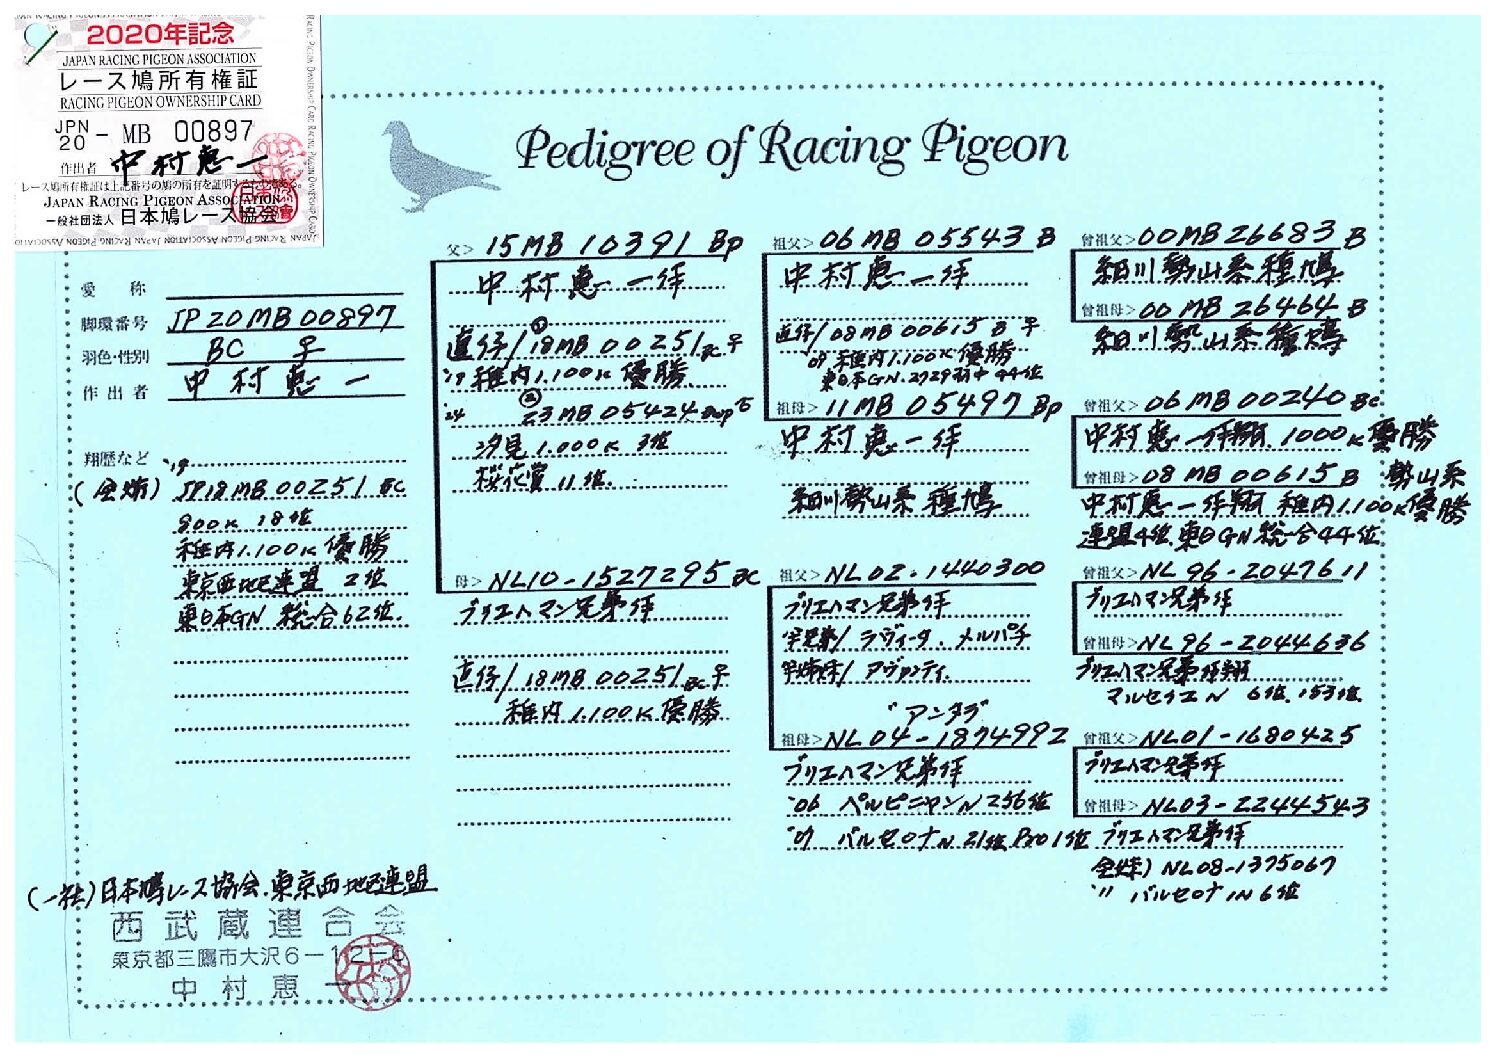 2020年記念
JAPAN RACING PIGEON ASSOCIATION
レース鳩所有権証
RACING PIGEON OWNERSHIP CARD
JPN 20 - MB 00897
作出者 中村惠一
レース鳩所有権証は上記番号の鳩の所有を証明する
JAPAN RACING PIGEON ASSOCIATION
一般社団法人 日本鳩レース協会
Pedigree of Racing Pigeon
愛称
脚環番号 JP20MB00897
羽色・性別 BC ♀
作出者 中村恵一
翔歴など '19
(全姉) JP18MB00251 BC
800K 18位
稚内1.100K優勝
東京西地区連盟 2位
東日本GN 総合62位.
父> 15MB10391 Bp
中村恵一作
直仔/18MB00251 BC ♀
'19稚内1.100K優勝
'24 23MB05424
汐見1.000K 3位
桜花賞11位.
母> NL10-1527295 BC
ブリエトマン兄弟作
直仔/18MB00251 BC ♀
稚内1.100K優勝
祖父> 06MB05543 B
中村恵一作
直仔/08MB00615 B ♀
09稚内1.100K優勝
東日本GN.2729羽中44位
祖母> 11MB05497 Bp
中村恵一作
細川勢山系種鳩
祖父> NL02-1440300
ブリエトマン兄弟作
全兄弟/ラヴィータ.メルパチ
全姉妹/アヴァンティ
"アンタブ"
祖母> NL04-1874992
ブリエトマン兄弟作
'06 ペルピニャンN256位
'07 バルセロナN21位 Pro1位
曾祖父> 00MB26683 B
細川勢山系種鳩
曾祖母> 00MB26464 B
細川勢山系種鳩
曾祖父> 06MB00240 BC
中村恵一作翔 1000K優勝
曾祖母> 08MB00615 B 勢山系
中村恵一作翔 稚内1.100K優勝
連盟4位.東日GN総合44位
曾祖父> NL96-2047611
ブリエトマン兄弟作
曾祖母> NL96-2044636
ブリエトマン兄弟作翔
マルセイユN 6位.153位
曾祖父> NL01-1680425
ブリエトマン兄弟作
曾祖母> NL03-2244543
ブリエトマン兄弟作
全妹) NL08-1375067
〃 バルセロナIN6位
(一社)日本鳩レース協会.東京西地区連盟
西武蔵連合会
東京都三鷹市大沢6-12-6
中村恵一